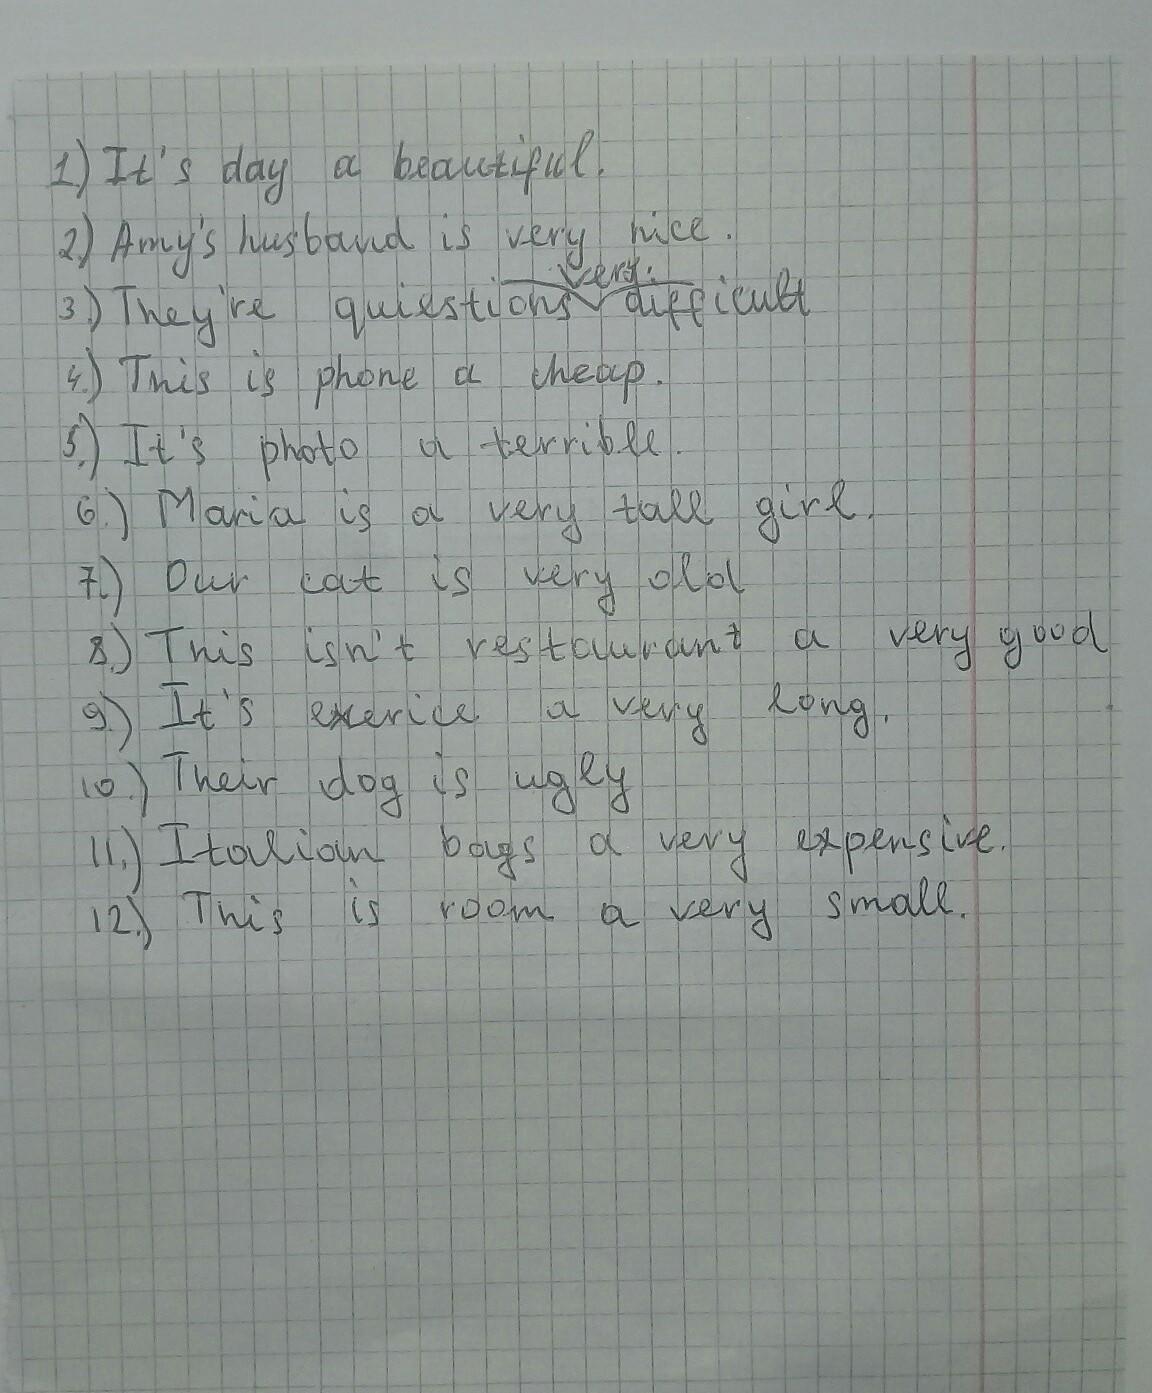 1) It's day a beautiful.
2) Amy's husband is very nice.
3.) They're quiestions very difficult
4.) This is phone a cheap.
5.) It's photo a terrible.
6.) Maria is a very tall girl.
7.) Our cat is very old
8.) This isn't restaurant a very good
9.) It's exerice a very long.
10.) Their dog is ugly
11.) Italian bags a very expensive.
12.) This is room a very small.